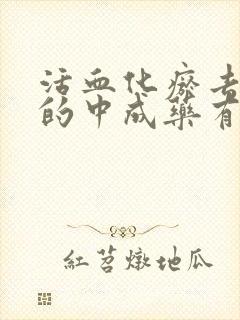 活血化瘀去
的中成药有
紅苕燉地瓜